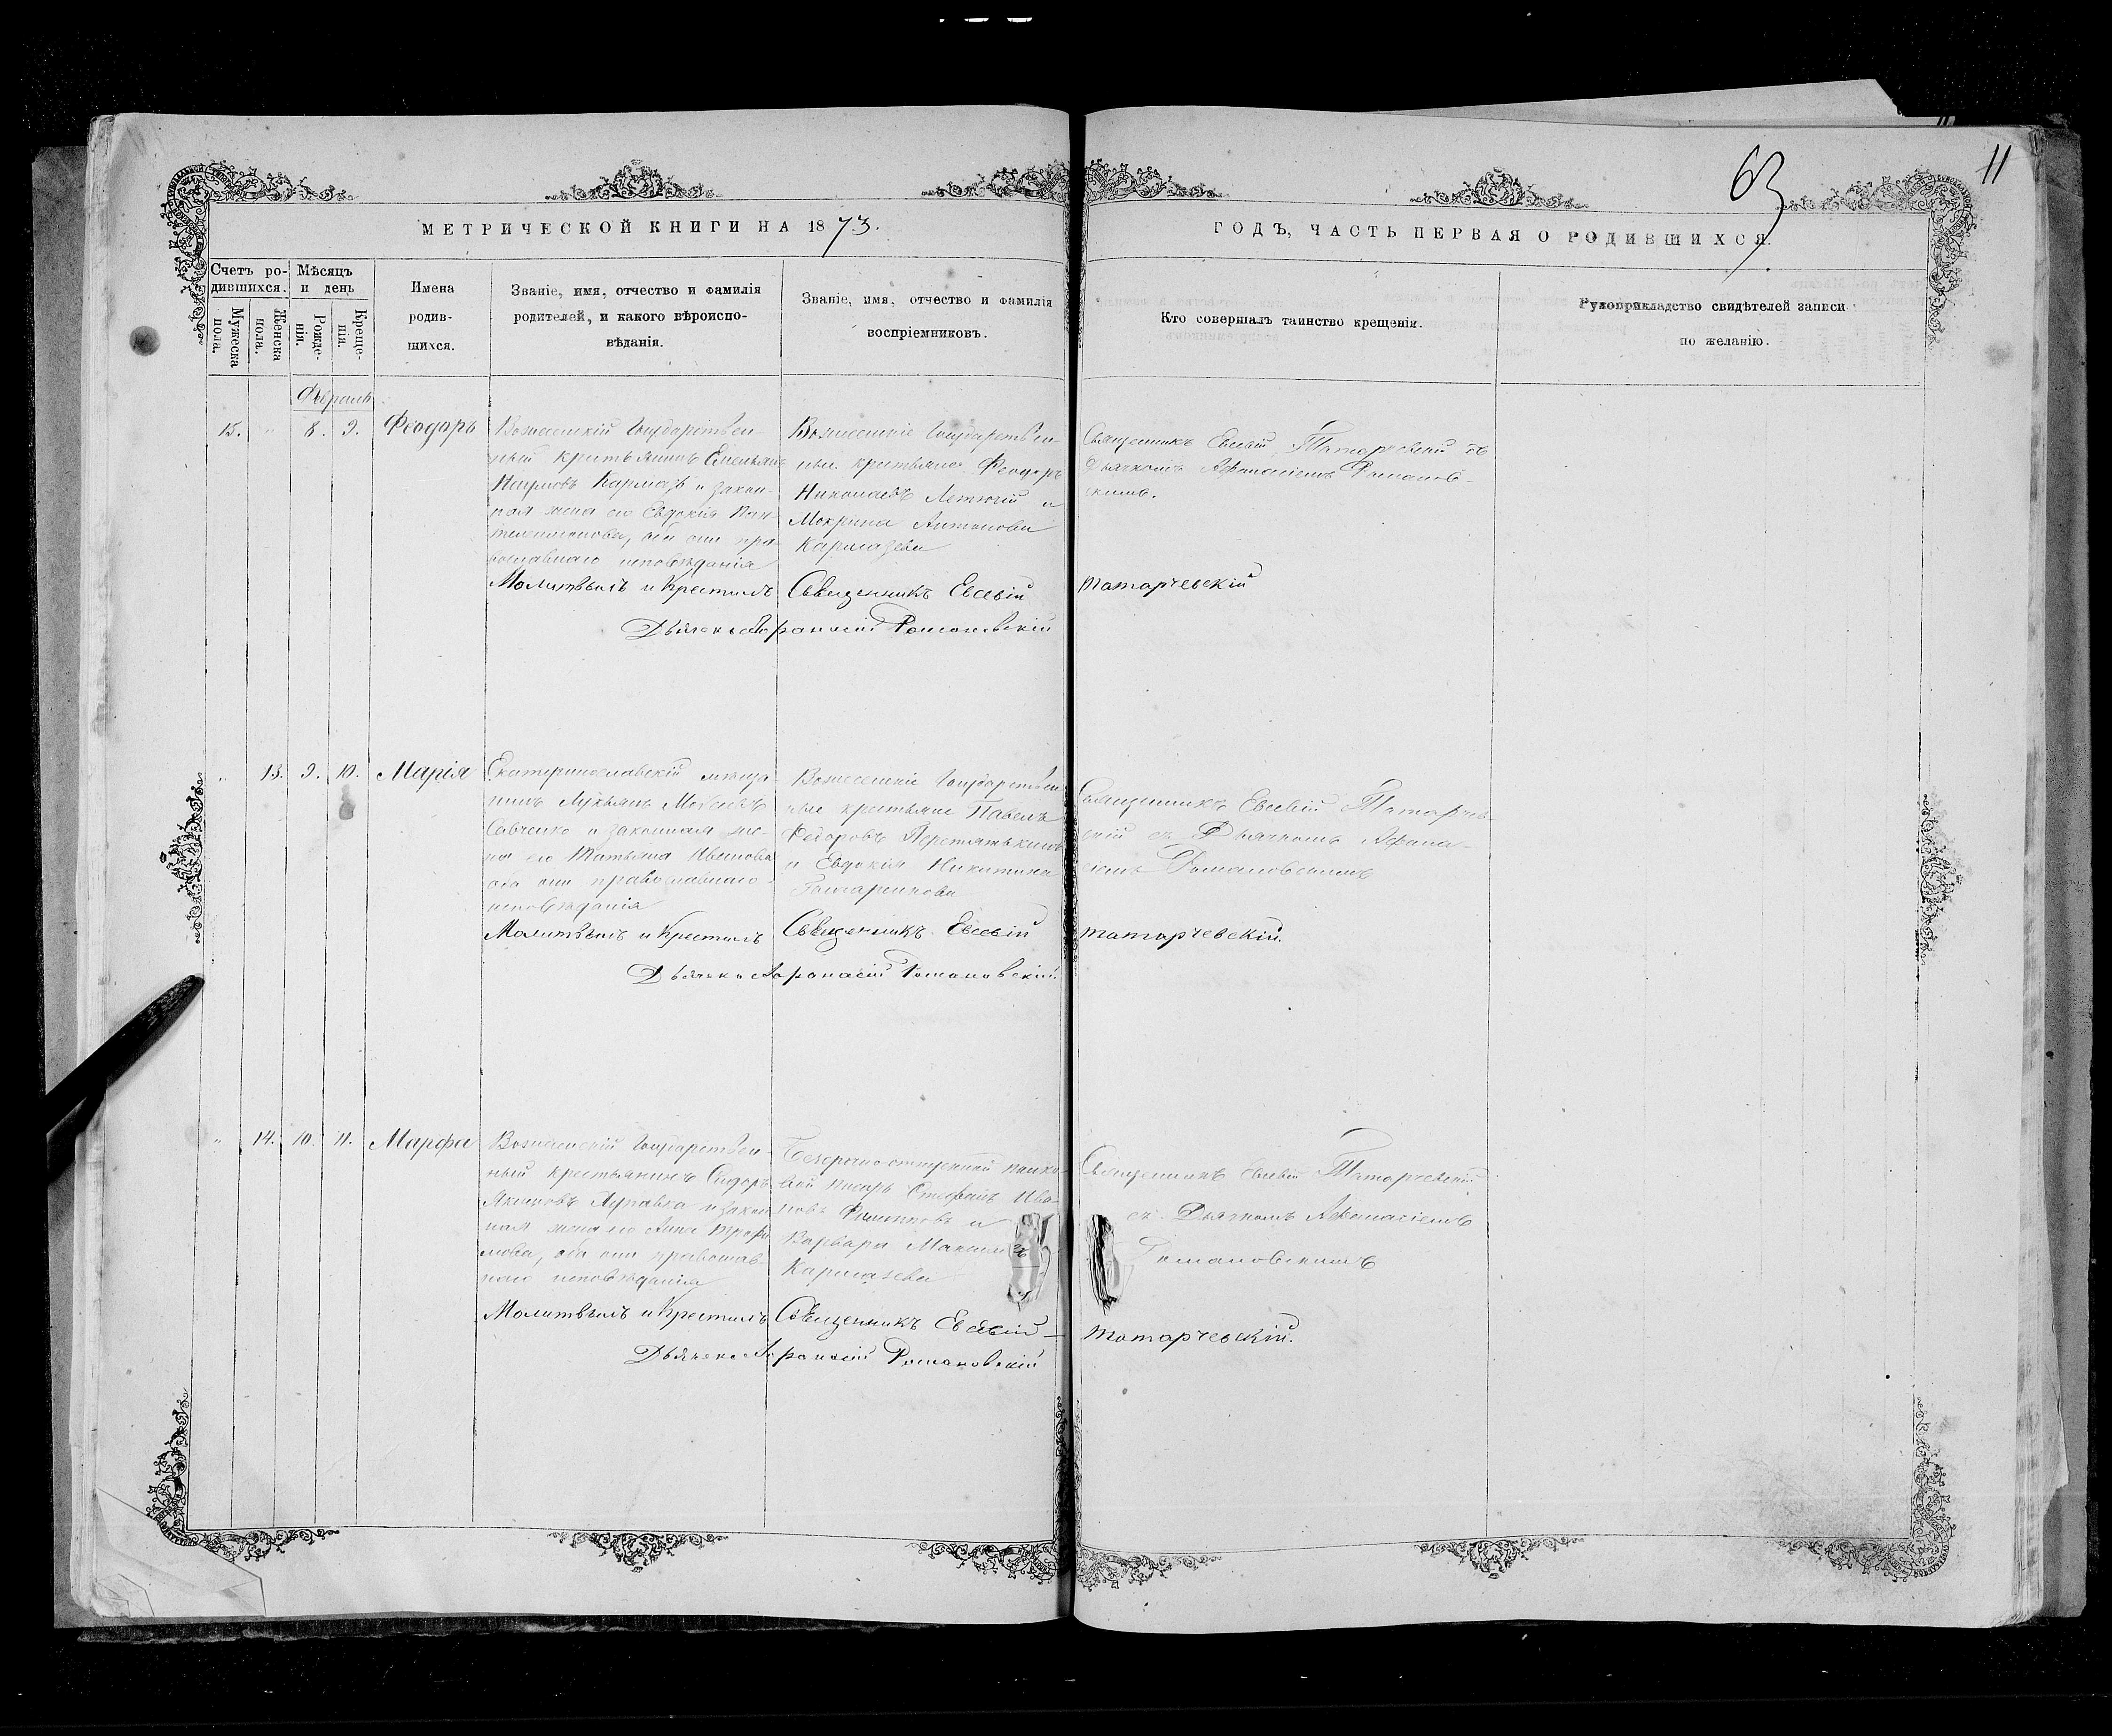 63
11
МЕТРИЧЕСКОЙ КНИГИ НА 1873.
ГОДЪ, ЧАСТЬ ПЕРВАЯ О РОДИВШИХСЯ.
Счетъ ро-
дившихся.
Мужеска
пола.
Женска
пола.
Мѣсяцъ
и день
Рожде-
нія.
Креще-
нія.
Имена
родив-
шихся.
Званіе, имя, отчество и фамилія
родителей, и какого вѣроиспо-
вѣданія.
Званіе, имя, отчество и фамилія
воспріемниковъ.
Кто совершалъ таинство крещенія.
Рукоприкладство свидѣтелей записи
по желанію.
Февраль
15. " 8. 9. Феодоръ
Вознесенскій Государствен-
ный крестьянинъ Емельянъ
Наумовъ Кармазь и закон-
ная жена его Евдокія Пан-
телеимонова, оба они пра-
вославнаго исповѣданія
Вознесенскіе Государствен-
ные крестьяне Феодоръ
Николаевъ Летючій и
Мокрина Антонова
Кармазева
Священникъ Евсевій Татарчевскій съ
Дьячкомъ Афанасіемъ Романов-
скимъ.
Молитввилъ и Крестилъ Священникъ Евсевій Татарчевскій
Дьячекъ Афанасій Романовскій
" 13. 9. 10. Марія
Екатеринославскій мѣща-
нинъ Лукьянъ Моѵсеевъ
Савченко и законная же-
на его Татьяна Иванова
оба они православнаго
исповѣданія
Вознесенскіе Государствен-
ные крестьяне Павелъ
Федоровъ Перетятькинъ
и Евдокія Никитина
Гончаренкова
Священникъ Евсевій Татарчев-
скій съ Дьячкомъ Афана-
сіемъ Романовскимъ
Молитввилъ и Крестилъ Священникъ Евсевій Татарчевскій.
Дьячекъ Афанасій Романовскій.
" 14. 10. 11. Марфа
Вознесенскій Государствен-
ный крестьянинъ Сидоръ
Якимовъ Журавка и закон
ная жена его Анна Трофи
мова, оба они православ-
наго исповѣданія
Безсрочно-отпускной полко-
вой писарь Стефанъ Ива-
новъ Филиповъ и
Варвара Максимов
Кармазева
Священникъ Евсевій Татарчевскій
съ Дьячкомъ Афанасіемъ
Романовскимъ
Молитввилъ и Крестилъ Священникъ Евсевій Татарчевскій.
Дьячекъ Афанасій Романовскій